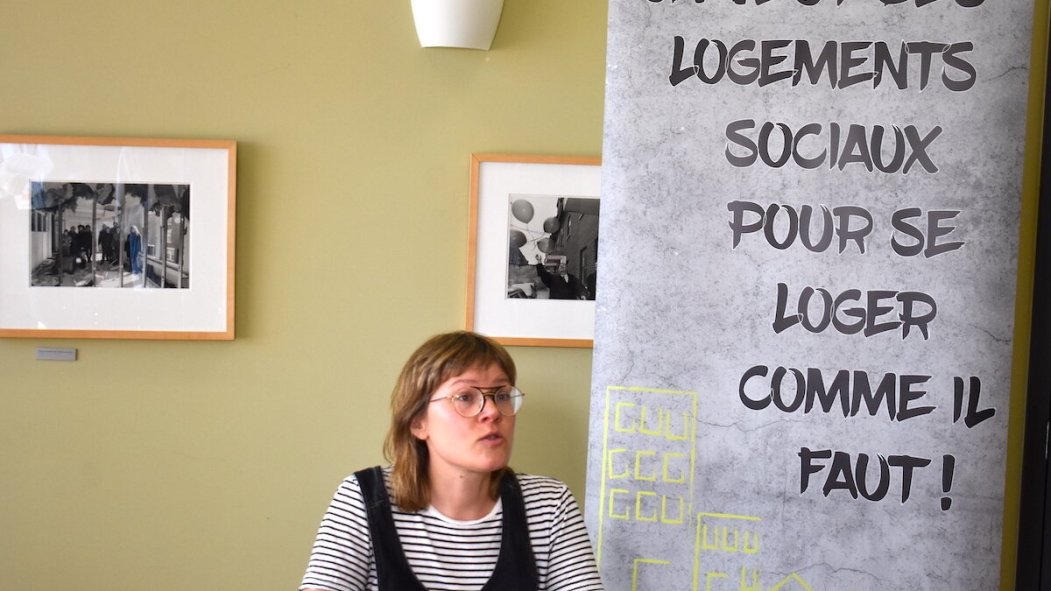 LOGEMENTS
SOCIAUX
POUR SE
LOGER
COMME IL
FAUT !